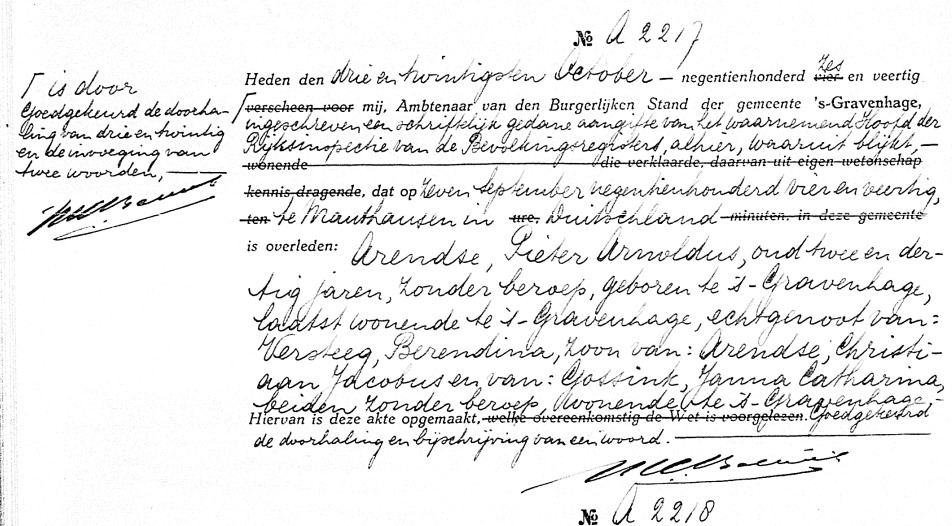 № A 2217
Γ is door
Goedgekeurd de doorha-
ling van drie en twintig
en de invoeging van
twee woorden,—
Heden den drie en twintigsten October — negentienhonderd vier zes en veertig
Γ verscheen voor mij, Ambtenaar van den Burgerlijken Stand der gemeente 's-Gravenhage,
ingeschreven een schriftelijk gedane aangifte van het waarnemend Hoofd der
Rijksinspectie van de Bevolkingsregisters, alhier, waaruit blijkt,—
wonende die verklaarde, daarvan uit eigen wetenschap
kennis dragende, dat op zeven September negentienhonderd vier en veertig,
ten te Mauthausen in ure, Duitschland minuten, in deze gemeente
is overleden: Arendse, Pieter Arnoldus, oud twee en der-
tig jaren, zonder beroep, geboren te 's-Gravenhage,
laatst wonende te 's-Gravenhage, echtgenoot van:
Versteeg, Berendina, zoon van: Arendse, Christi-
aan Jacobus en van: Gossink, Janna Catharina,
beiden zonder beroep, wonende te 's-Gravenhage.—
Hiervan is deze akte opgemaakt, welke overeenkomstig de Wet is voorgelezen. Goedgekeurd
de doorhaling en bijschrijving van een woord.—
№ A 2218